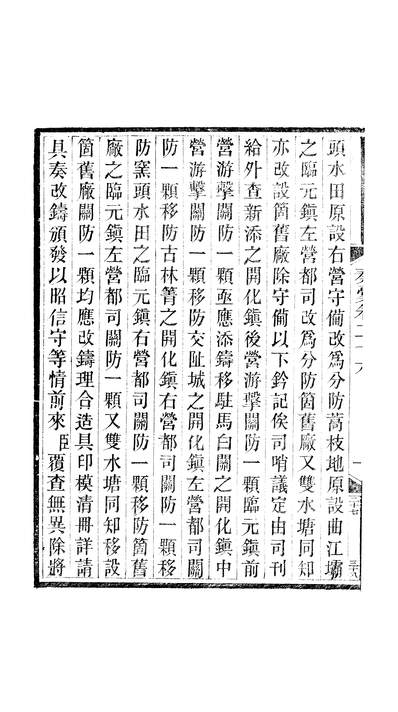 頭水田原設右營守備改為分防蒿枝地原設曲江壩
之臨元鎮左營都司改為分防箇舊廠又雙水塘同知
亦改設箇舊廠除守備以下鈐記俟司哨議定由司刊
給外查新添之開化鎮後營游擊關防一顆臨元鎮前
營游擊關防一顆亟應添鑄移駐馬白關之開化鎮中
營游擊關防一顆移防交趾城之開化鎮左營都司關
防一顆移防古林箐之開化鎮右營都司關防一顆移
防窯頭水田之臨元鎮右營都司關防一顆移防箇舊
廠之臨元鎮左營都司關防一顆又雙水塘同知移設
箇舊廠關防一顆均應改鑄理合造具印模清冊詳請
具奏改鑄頒發以昭信守等情前來臣覆查無異除將